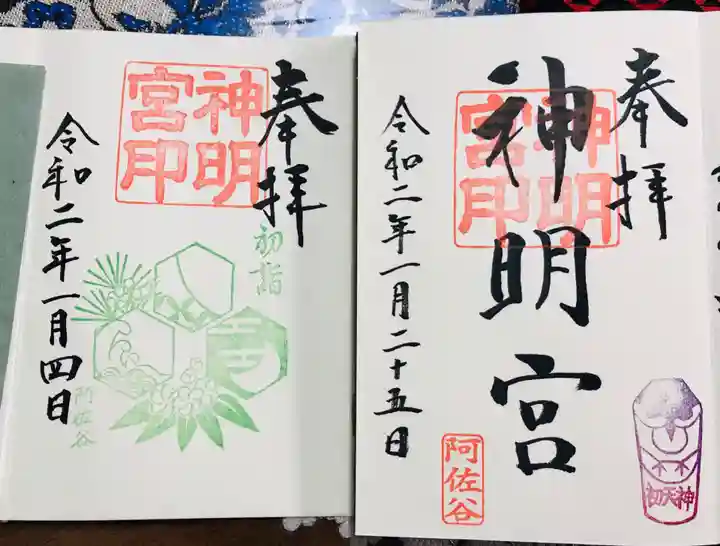 奉拝
神明宮印
初詣
阿佐谷
令和二年一月四日
奉拝
神明宮
神明宮印
初天神
令和二年一月二十五日
阿佐谷